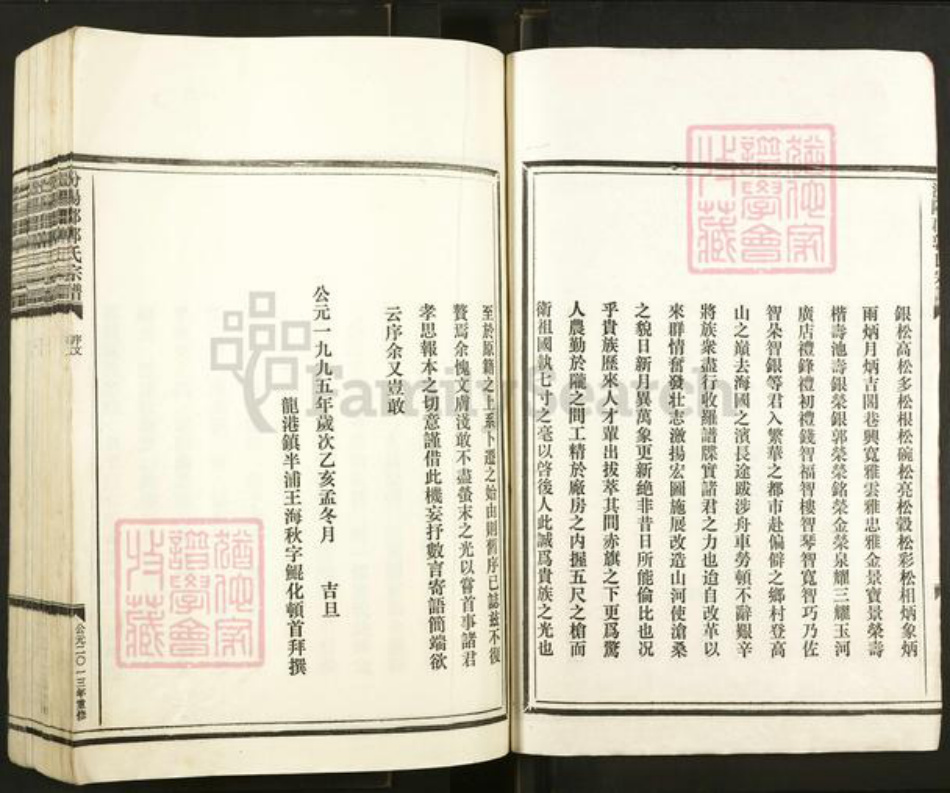 銀松高松多松根松碗松亮松毅松彩松相炳象炳
雨炳月炳吉閣巷興寬雅雲雅忠雅金景寶景榮壽
楷壽池壽銀榮銀郭榮榮銘榮金榮泉耀三耀玉河
廣店禮鋒禮初禮錢智福智樓智琴智寬智巧乃佐
智朵智銀等君入繁華之都市赴偏僻之鄉村登高
山之巔去海國之濱長途跋涉舟車勞頓不辭艱辛
將族衆盡行收羅譜牒實諸君之力也迨自改革以
來群情奮發壯志激揚宏圖施展改造山河使滄桑
之貌日新月異萬象更新絶非昔日所能倫比也況
乎貴族歷來人才輩出拔萃其間赤旗之下更爲驚
人農勤於隴之間工精於廠房之内握五尺之槍而
衛祖國執七寸之毫以啓後人此誠爲貴族之光也
至於原籍之上系卜遷之始由則舊序已誌兹不復
贅焉余愧文膚淺敢不盡螢末之光以嘗首事諸君
孝思報本之切意謹借此機妄抒數言寄語簡端欲
云序余又豈敢
公元一九九五年歲次乙亥孟冬月 吉旦
龍港鎮半浦王海秋字鯤化頓首拜撰
汾陽郡郭氏宗譜
序文
公元二〇一三年重修
FamilySearch